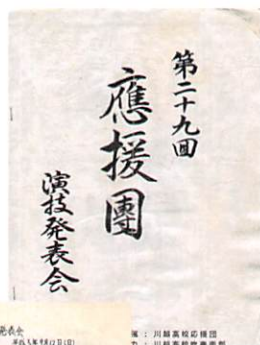 第二十九回
應援團
演技発表会
発表会
催 : 川越高校応援団
力 : 川越高校吹奏楽部